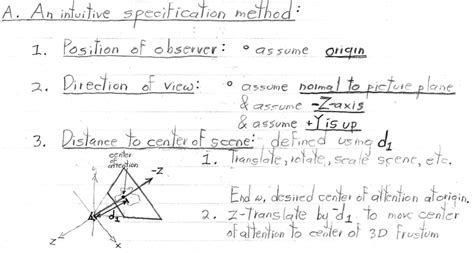 A. An intuitive specification method:
1. Position of observer: ° assume origin
2. Direction of view: ° assume normal to picture plane
& assume -Z-axis
& assume +Y is up
3. Distance to center of scene: defined using d1
center
of
attention
-Z
d1
Z
X
1. Translate, rotate, scale scene, etc.
End w. desired center of attention at origin.
2. Z-Translate by -d1 to move center
of attention to center of 3D frustum